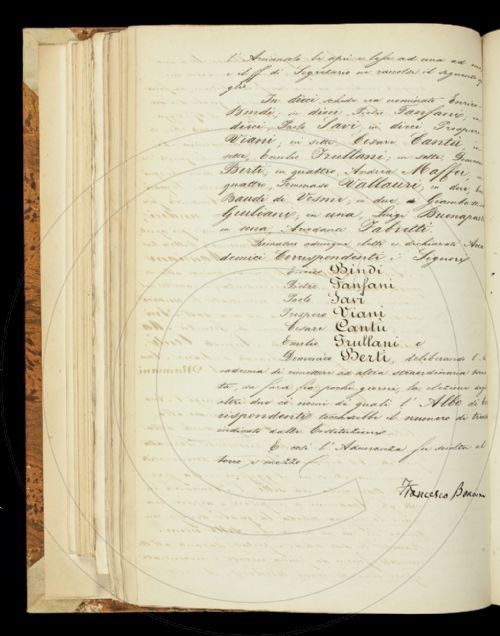 l'Arciconsolo le aprì e lesse ad una ad una
e il ff. di Segretario ne raccolse il seguente
glio.
In dieci schede era nominato Enrico
Bindi, in dieci, Pietro Fanfani, in
dieci, Paolo Savi, in dieci Prospero
Viani, in sette Cesare Cantù, in
sette, Emilio Frullani, in sette, Domenico
Berti, in quattro, Andrea Maffei, in
quattro, Tommaso Vallauri, in due,
Baudi di Vesme, in due, Giambattista
Giuliani, in una, Luigi Bonaparte
in una, Ariodante Fabretti.
Rimasero adunque eletti e dichiarati Acca
demici Corrispondenti i Signori
Enrico Bindi
Pietro Fanfani
Paolo Savi
Prospero Viani
Cesare Cantù
Emilio Frullani e
Domenico Berti, deliberando l'
cademia di rimettere ad altra straordinaria
ta, da farsi fra pochi giorni, la elezione
altri due co' nomi de' quali l'Albo di
rispondenti toccherebbe il numero di
indicato dalle Costituzioni.
E così l'Adunanza fu sciolta al
tocco e mezzo
Francesco